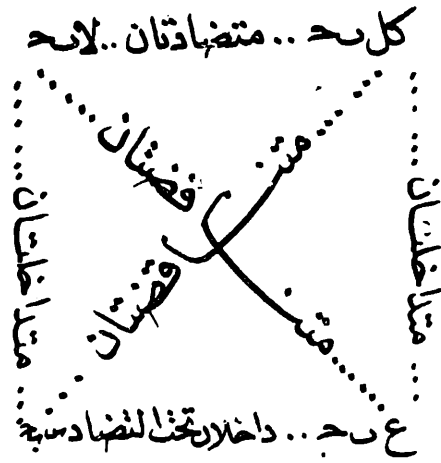 كل بـ حـ .. متضادتان .. لا بـ حـ
متنا قضتان
متنا قضتان
متداخلتان
متداخلتان
ع بـ حـ .. داخلان تحت التضاد